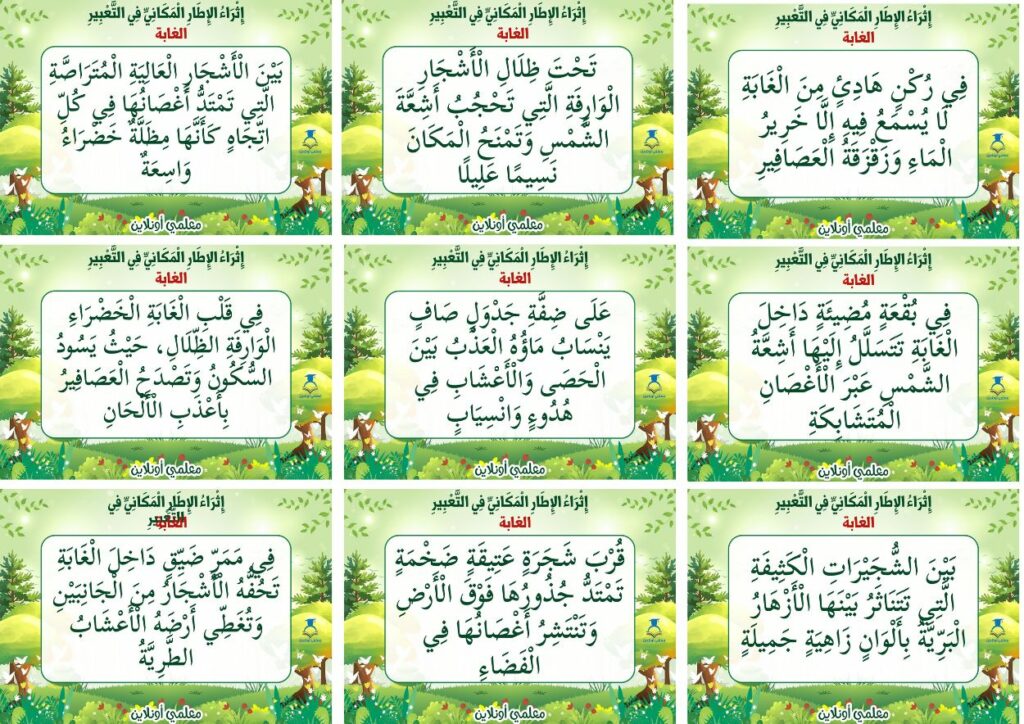 إِثْرَاءُ الإِطَارِ الْمَكَانِيِّ فِي التَّعْبِيرِ
الغابة
فِي رُكْنٍ هَادِئٍ مِنَ الْغَابَةِ
لَا يُسْمَعُ فِيهِ إِلَّا خَرِيرُ
الْمَاءِ وَزَقْزَقَةُ الْعَصَافِيرِ
معلمي أونلاين
إِثْرَاءُ الإِطَارِ الْمَكَانِيِّ فِي التَّعْبِيرِ
الغابة
تَحْتَ ظِلَالِ الْأَشْجَارِ
الْوَارِفَةِ الَّتِي تَحْجُبُ أَشِعَّةَ
الشَّمْسِ وَتَمْنَحُ الْمَكَانَ
نَسِيمًا عَلِيلًا
معلمي أونلاين
إِثْرَاءُ الإِطَارِ الْمَكَانِيِّ فِي التَّعْبِيرِ
الغابة
بَيْنَ الْأَشْجَارِ الْعَالِيَةِ الْمُتَرَاصَّةِ
الَّتِي تَمْتَدُّ أَغْصَانُهَا فِي كُلِّ
اتِّجَاهٍ كَأَنَّهَا مِظَلَّةٌ خَضْرَاءُ
وَاسِعَةٌ
معلمي أونلاين
إِثْرَاءُ الإِطَارِ الْمَكَانِيِّ فِي التَّعْبِيرِ
الغابة
فِي بُقْعَةٍ مُضِيئَةٍ دَاخِلَ
الْغَابَةِ تَتَسَلَّلُ إِلَيْهَا أَشِعَّةُ
الشَّمْسِ عَبْرَ الْأَغْصَانِ
الْمُتَشَابِكَةِ
معلمي أونلاين
إِثْرَاءُ الإِطَارِ الْمَكَانِيِّ فِي التَّعْبِيرِ
الغابة
عَلَى ضِفَّةِ جَدْوَلٍ صَافٍ
يَنْسَابُ مَاؤُهُ الْعَذْبُ بَيْنَ
الْحَصَى وَالْأَعْشَابِ فِي
هُدُوءٍ وَانْسِيَابٍ
معلمي أونلاين
إِثْرَاءُ الإِطَارِ الْمَكَانِيِّ فِي التَّعْبِيرِ
الغابة
فِي قَلْبِ الْغَابَةِ الْخَضْرَاءِ
الْوَارِفَةِ الظِّلَالِ، حَيْثُ يَسُودُ
السُّكُونُ وَتَصْدَحُ الْعَصَافِيرُ
بِأَعْذَبِ الْأَلْحَانِ
معلمي أونلاين
إِثْرَاءُ الإِطَارِ الْمَكَانِيِّ فِي التَّعْبِيرِ
الغابة
بَيْنَ الشُّجَيْرَاتِ الْكَثِيفَةِ
الَّتِي تَتَنَاثَرُ بَيْنَهَا الْأَزْهَارُ
الْبَرِّيَّةُ بِأَلْوَانٍ زَاهِيَةٍ جَمِيلَةٍ
معلمي أونلاين
إِثْرَاءُ الإِطَارِ الْمَكَانِيِّ فِي التَّعْبِيرِ
الغابة
قُرْبَ شَجَرَةٍ عَتِيقَةٍ ضَخْمَةٍ
تَمْتَدُّ جُذُورُهَا فَوْقَ الْأَرْضِ
وَتَنْتَشِرُ أَغْصَانُهَا فِي
الْفَضَاءِ
معلمي أونلاين
إِثْرَاءُ الإِطَارِ الْمَكَانِيِّ فِي
التَّعْبِيرِ
الغابة
فِي مَمَرٍّ ضَيِّقٍ دَاخِلَ الْغَابَةِ
تَحُفُّهُ الْأَشْجَارُ مِنَ الْجَانِبَيْنِ
وَتُغَطِّي أَرْضَهُ الْأَعْشَابُ
الطَّرِيَّةُ
معلمي أونلاين